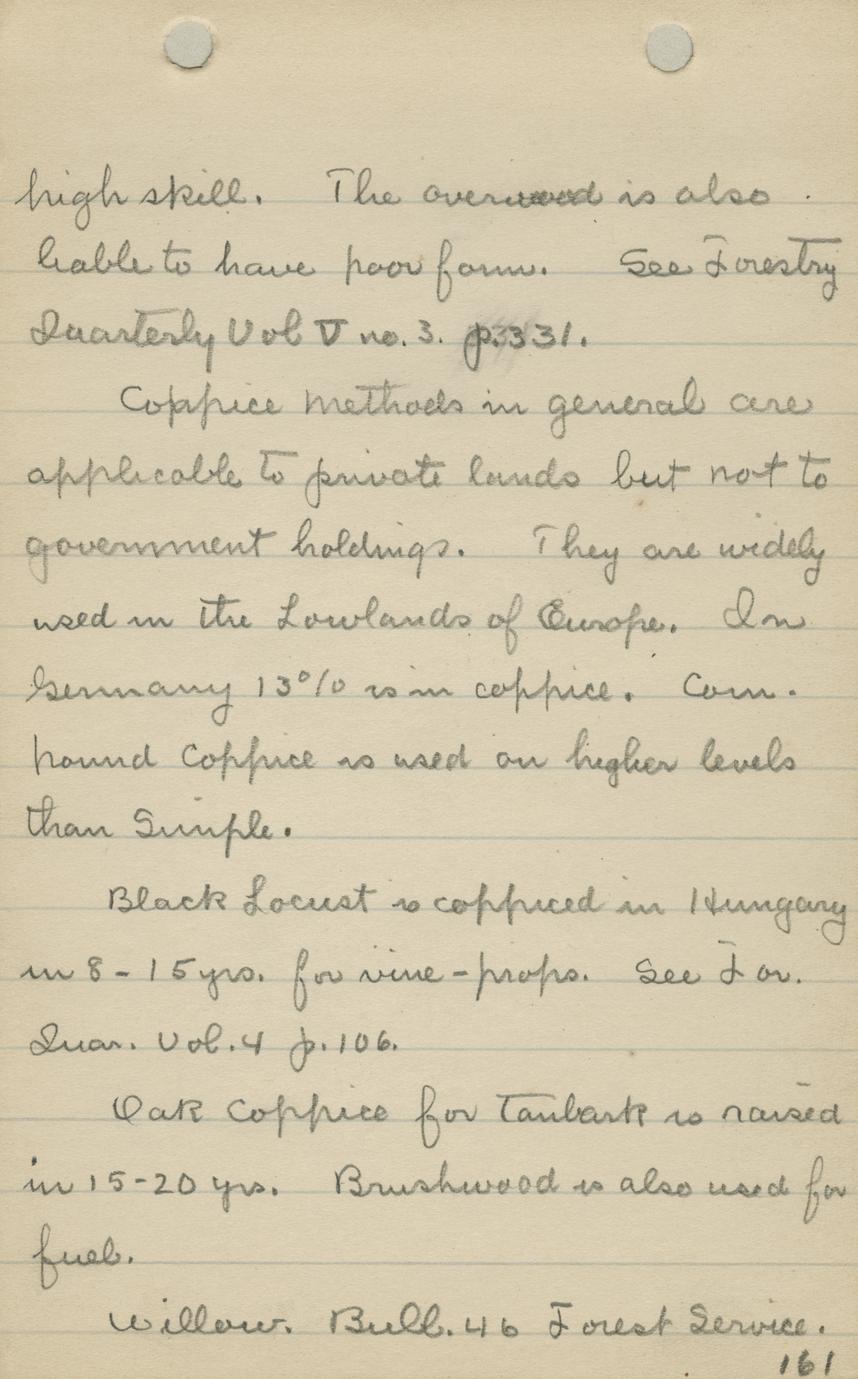 high skill. The overwood is also
liable to have poor form. See Forestry
Quarterly Vol V no. 3. p.331.
Coppice methods in general are
applicable to private lands but not to
government holdings. They are widely
used in the Lowlands of Europe. In
Germany 13% is in coppice. Com-
pound Coppice is used on higher levels
than Simple.
Black Locust is coppiced in Hungary
in 8-15 yrs. for vine-props. See For.
Quar. Vol. 4 p. 106.
Oak Coppice for Tanbark is raised
in 15-20 yrs. Brushwood is also used for
fuel.
Willow. Bull. 46 Forest Service.
161